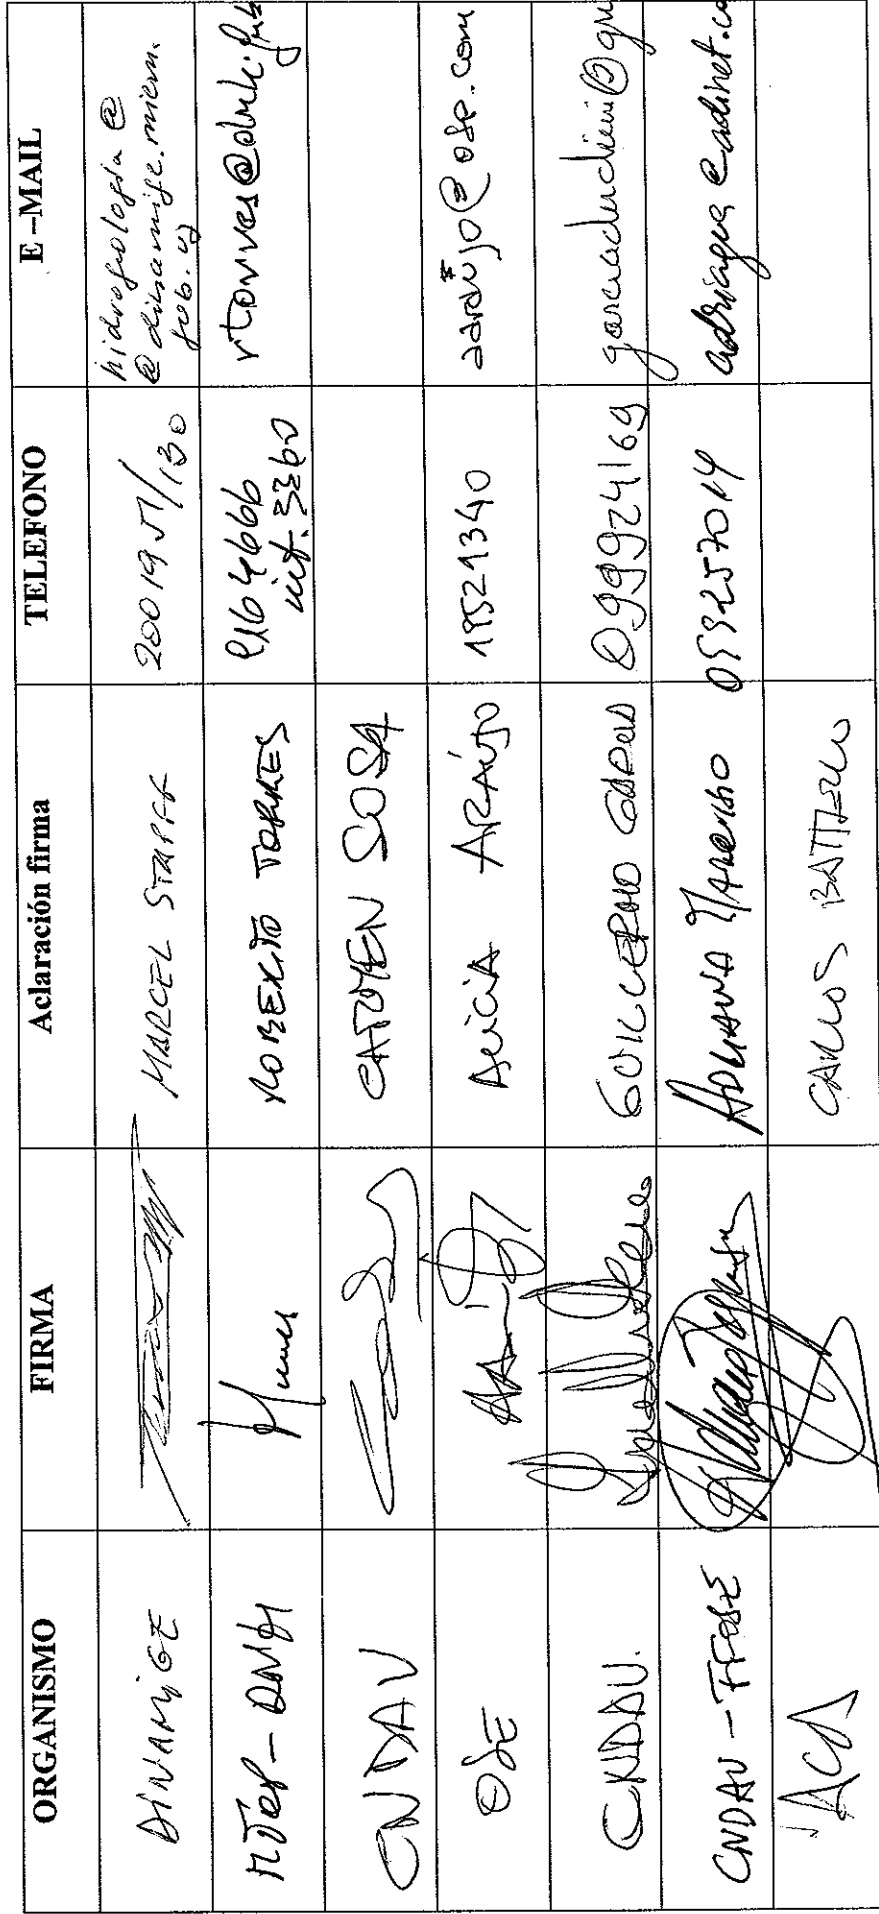 ORGANISMO FIRMA Aclaración firma TELEFONO E-MAIL
DINAMIGE MARCEL STAPFF 2001951/130 hidrogeologia@
@dinamige.miem.
gub.uy
MTOP-DNH ROBERTO TORRES 9164666
int. 3360 rtorres@dnh.gub
CNDAV CARMEN SOSA
OSE ALICIA ARAÚJO 19521340 aaraujo@ose.com
CNDAV. GUILLERMO GARCIA 099924169
CNDAV - FFOSE ADRIANA 099257014 adriagua@adinet.co
CARLOS